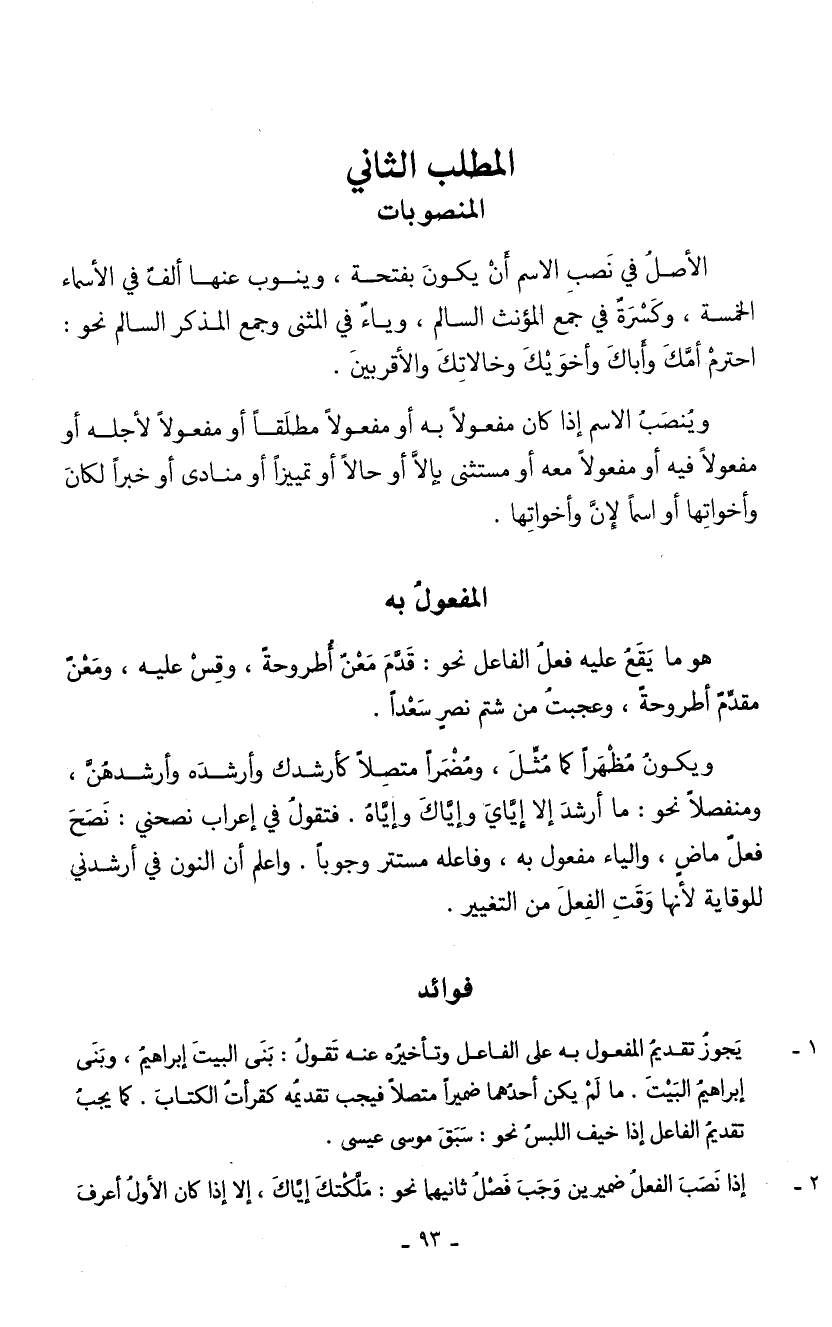 المطلب الثاني
المنصوبات
الأصلُ في نَصبِ الاسم أَنْ يكونَ بفتحة ، وينوب عنها ألفٌ في الأسماء
الخمسة ، وكَسْرَةٌ في جمع المؤنث السالم ، وياءٌ في المثنى وجمع المذكر السالم نحو :
احترمْ أمَّكَ وأَباكَ وأخوَيْكَ وخالاتِكَ والأقربينَ .
ويُنصَبُ الاسم إذا كان مفعولاً به أو مفعولاً مطلَقاً أو مفعولاً لأجله أو
مفعولاً فيه أو مفعولاً معه أو مستثنى بإلاَّ أو حالاً أو تمييزاً أو منادى أو خبراً لكانَ
وأخواتِها أو اسماً لإنَّ وأخواتِها .
المفعولُ به
هو ما يَقَعُ عليه فعلُ الفاعل نحو : قَدَّمَ مَعْنٌ أُطروحةً ، وقِسْ عليه ، ومَعْنٌ
مقدِّمٌ أطروحةً ، وعجبتُ من شتم نصرٍ سَعْداً .
ويكونُ مُظْهَراً كما مُثِّلَ ، ومُضْمَراً متصِلاً كأرشدك وأرشدَه وأرشدهُنَّ ،
ومنفصلاً نحو : ما أرشدَ إلا إيَّايَ وإيَّاكَ وإيَّاهُ . فتقولُ في إعراب نصحني : نَصَحَ
فعلٌ ماضٍ ، والياء مفعول به ، وفاعله مستتر وجوباً . واعلم أن النون في أرشدني
للوقاية لأنها وَقَتِ الفِعلَ من التغيير .
فوائد
١ - يَجوزُ تقديمُ المفعول به على الفاعل وتأخيرُه عنه تَقولُ : بَنَى البيتَ إبراهيمُ ، وبَنَى
إبراهيمُ البَيْتَ . ما لَمْ يكن أحدُهما ضميراً متصلاً فيجب تقديمُه كقرأتُ الكتابَ . كما يجبُ
تقديمُ الفاعل إذا خيف اللبسُ نحو : سَبَقَ موسى عيسى .
٢ - إذا نَصَبَ الفعلُ ضميرين وَجَبَ فَصْلُ ثانيهما نحو : مَلَّكْتكَ إيَّاكَ ، إلا إذا كان الأولُ أعرفَ
- ٩٣ -